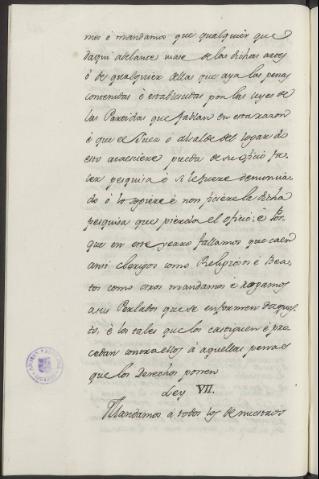 mos é mandamos que qualquier que
daqui adelante usare de las dichas artes
ó de qualquier dellas que aya las penas
contenidas é establecidas por las leyes de
las Partidas que fablan en esta razon
é que el Juez ó alcalde del logar do
esto acaesciere pueda de su oficio fa-
cer pesquisa é si le fuere denuncia-
do ó lo sopiere é non ficiere la dicha
pesquisa que pierda el oficio: é los
que en este yerro fallamos que caen
ansi clerigos como Religiosos é Bea-
tos como otros mandamos é rogamos
a sus Perlados que se informen daques-
to, é los tales que los castiguen é pro-
cedan contra ellos á aquellas penas
que los derechos ponen
Ley VII.
Mandamos á todos los de nuestros